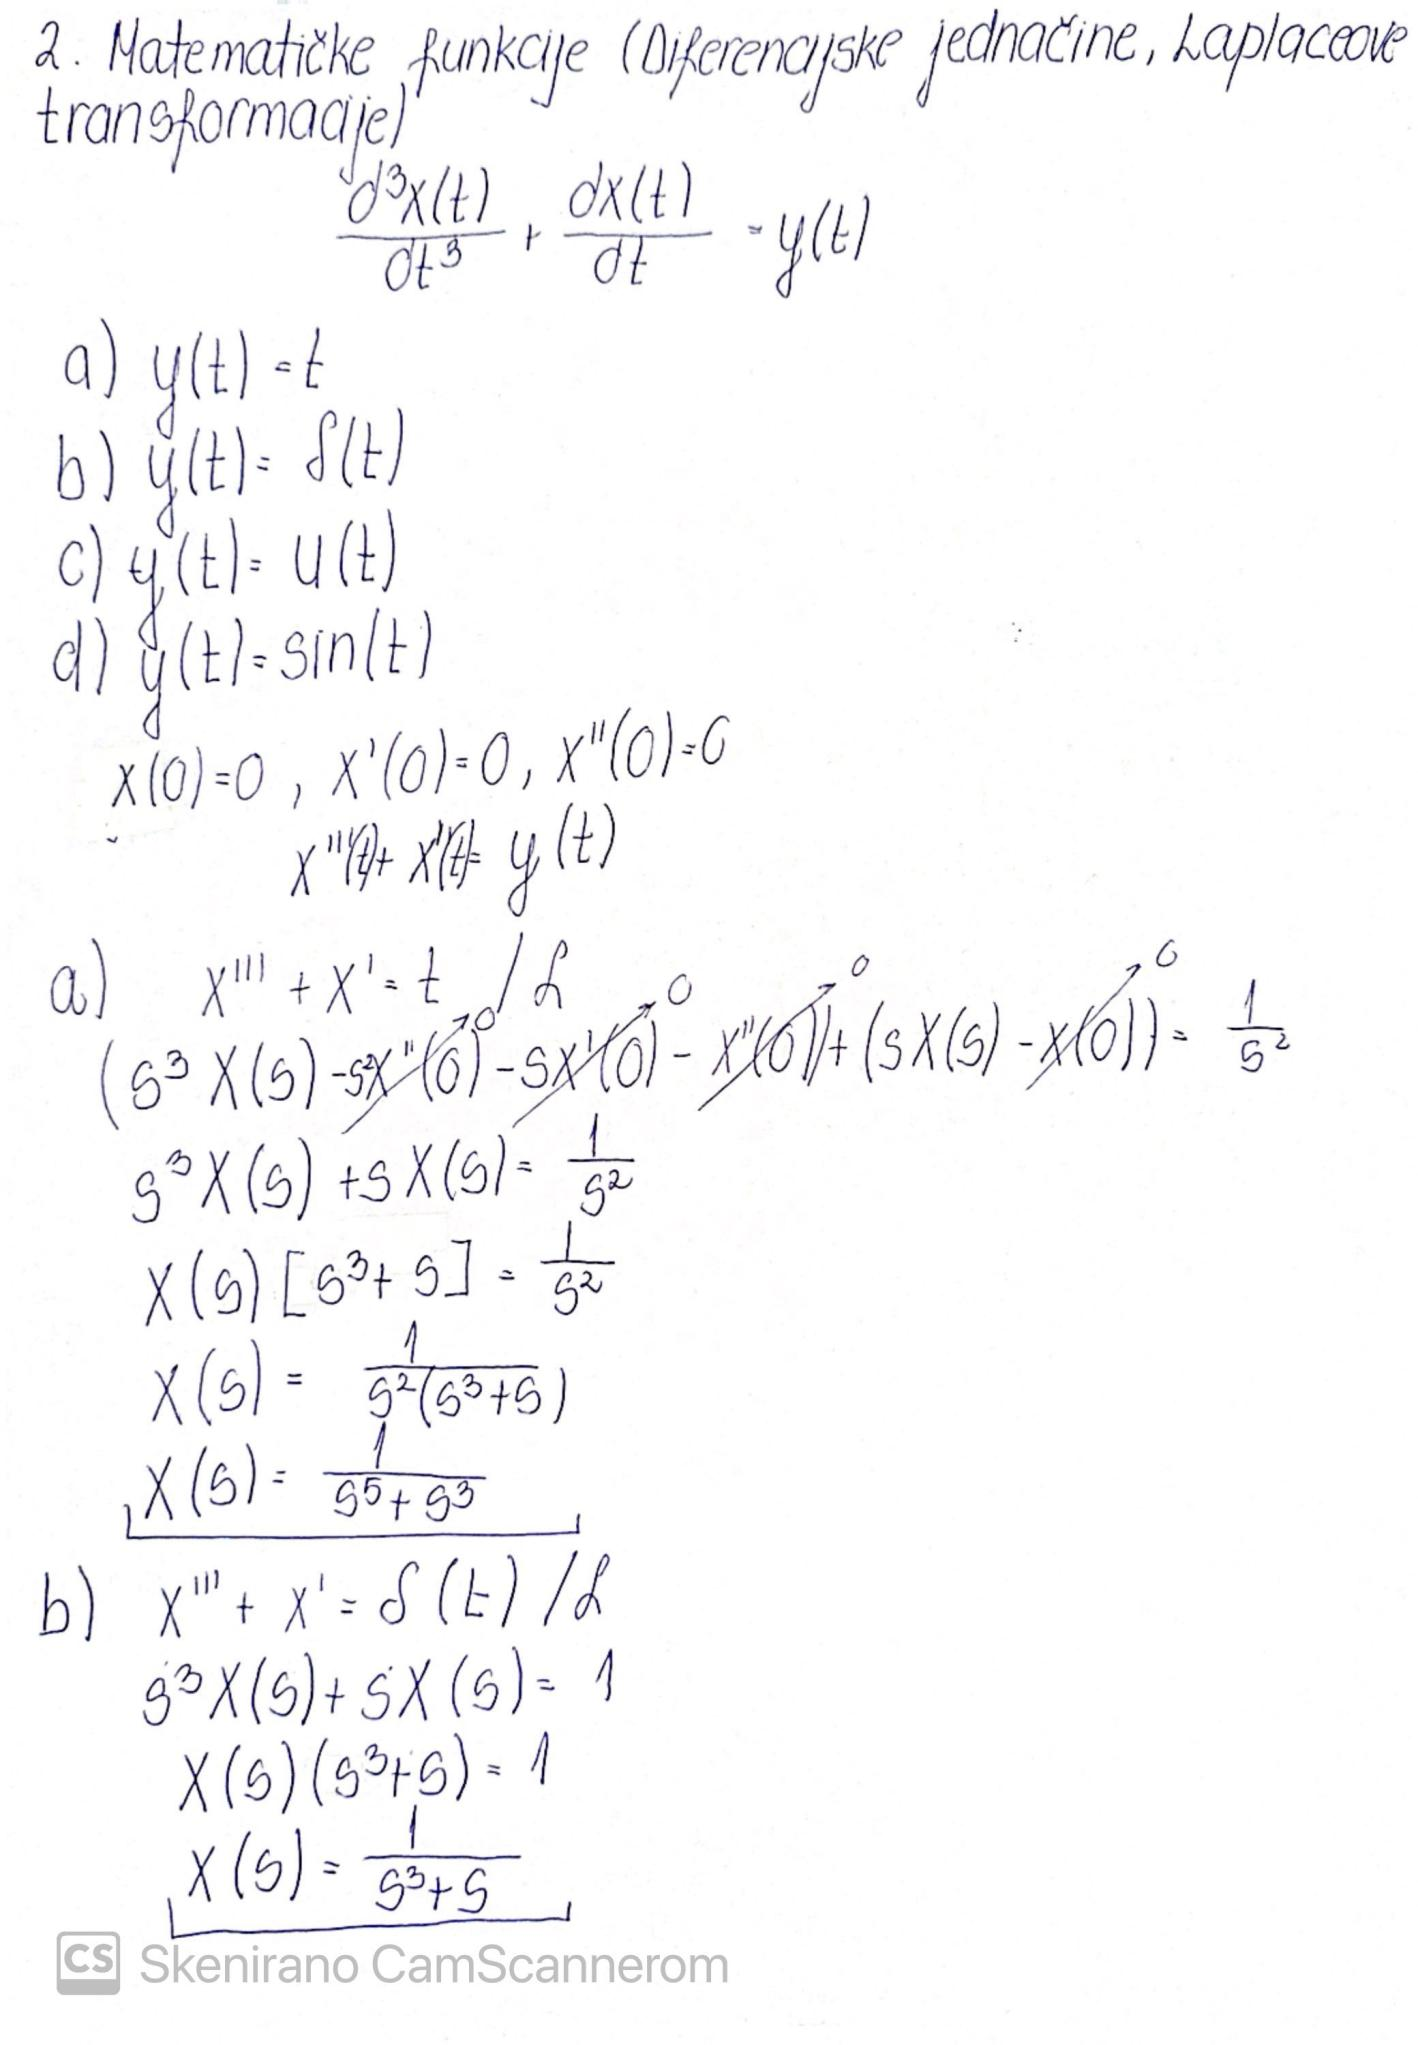 2. Matematičke funkcije (Diferencijske jednačine, Laplaceove
transformacije)
d³x(t)/dt³ + dx(t)/dt = y(t)
a) y(t) = t
b) y(t) = δ(t)
c) y(t) = u(t)
d) y(t) = sin(t)
x(0)=0, x'(0)=0, x''(0)=0
x'''(t) + x'(t) = y(t)
a) x''' + x' = t /ℒ
(s³X(s) - s²x''(0) - sx'(0) - x''(0)) + (sX(s) - x(0)) = 1/s²
s³X(s) + sX(s) = 1/s²
X(s)[s³ + s] = 1/s²
X(s) = 1/s²(s³+s)
X(s) = 1/s⁵+s³
b) x''' + x' = δ(t) /ℒ
s³X(s) + sX(s) = 1
X(s)(s³+s) = 1
X(s) = 1/s³+s
CS Skenirano CamScannerom